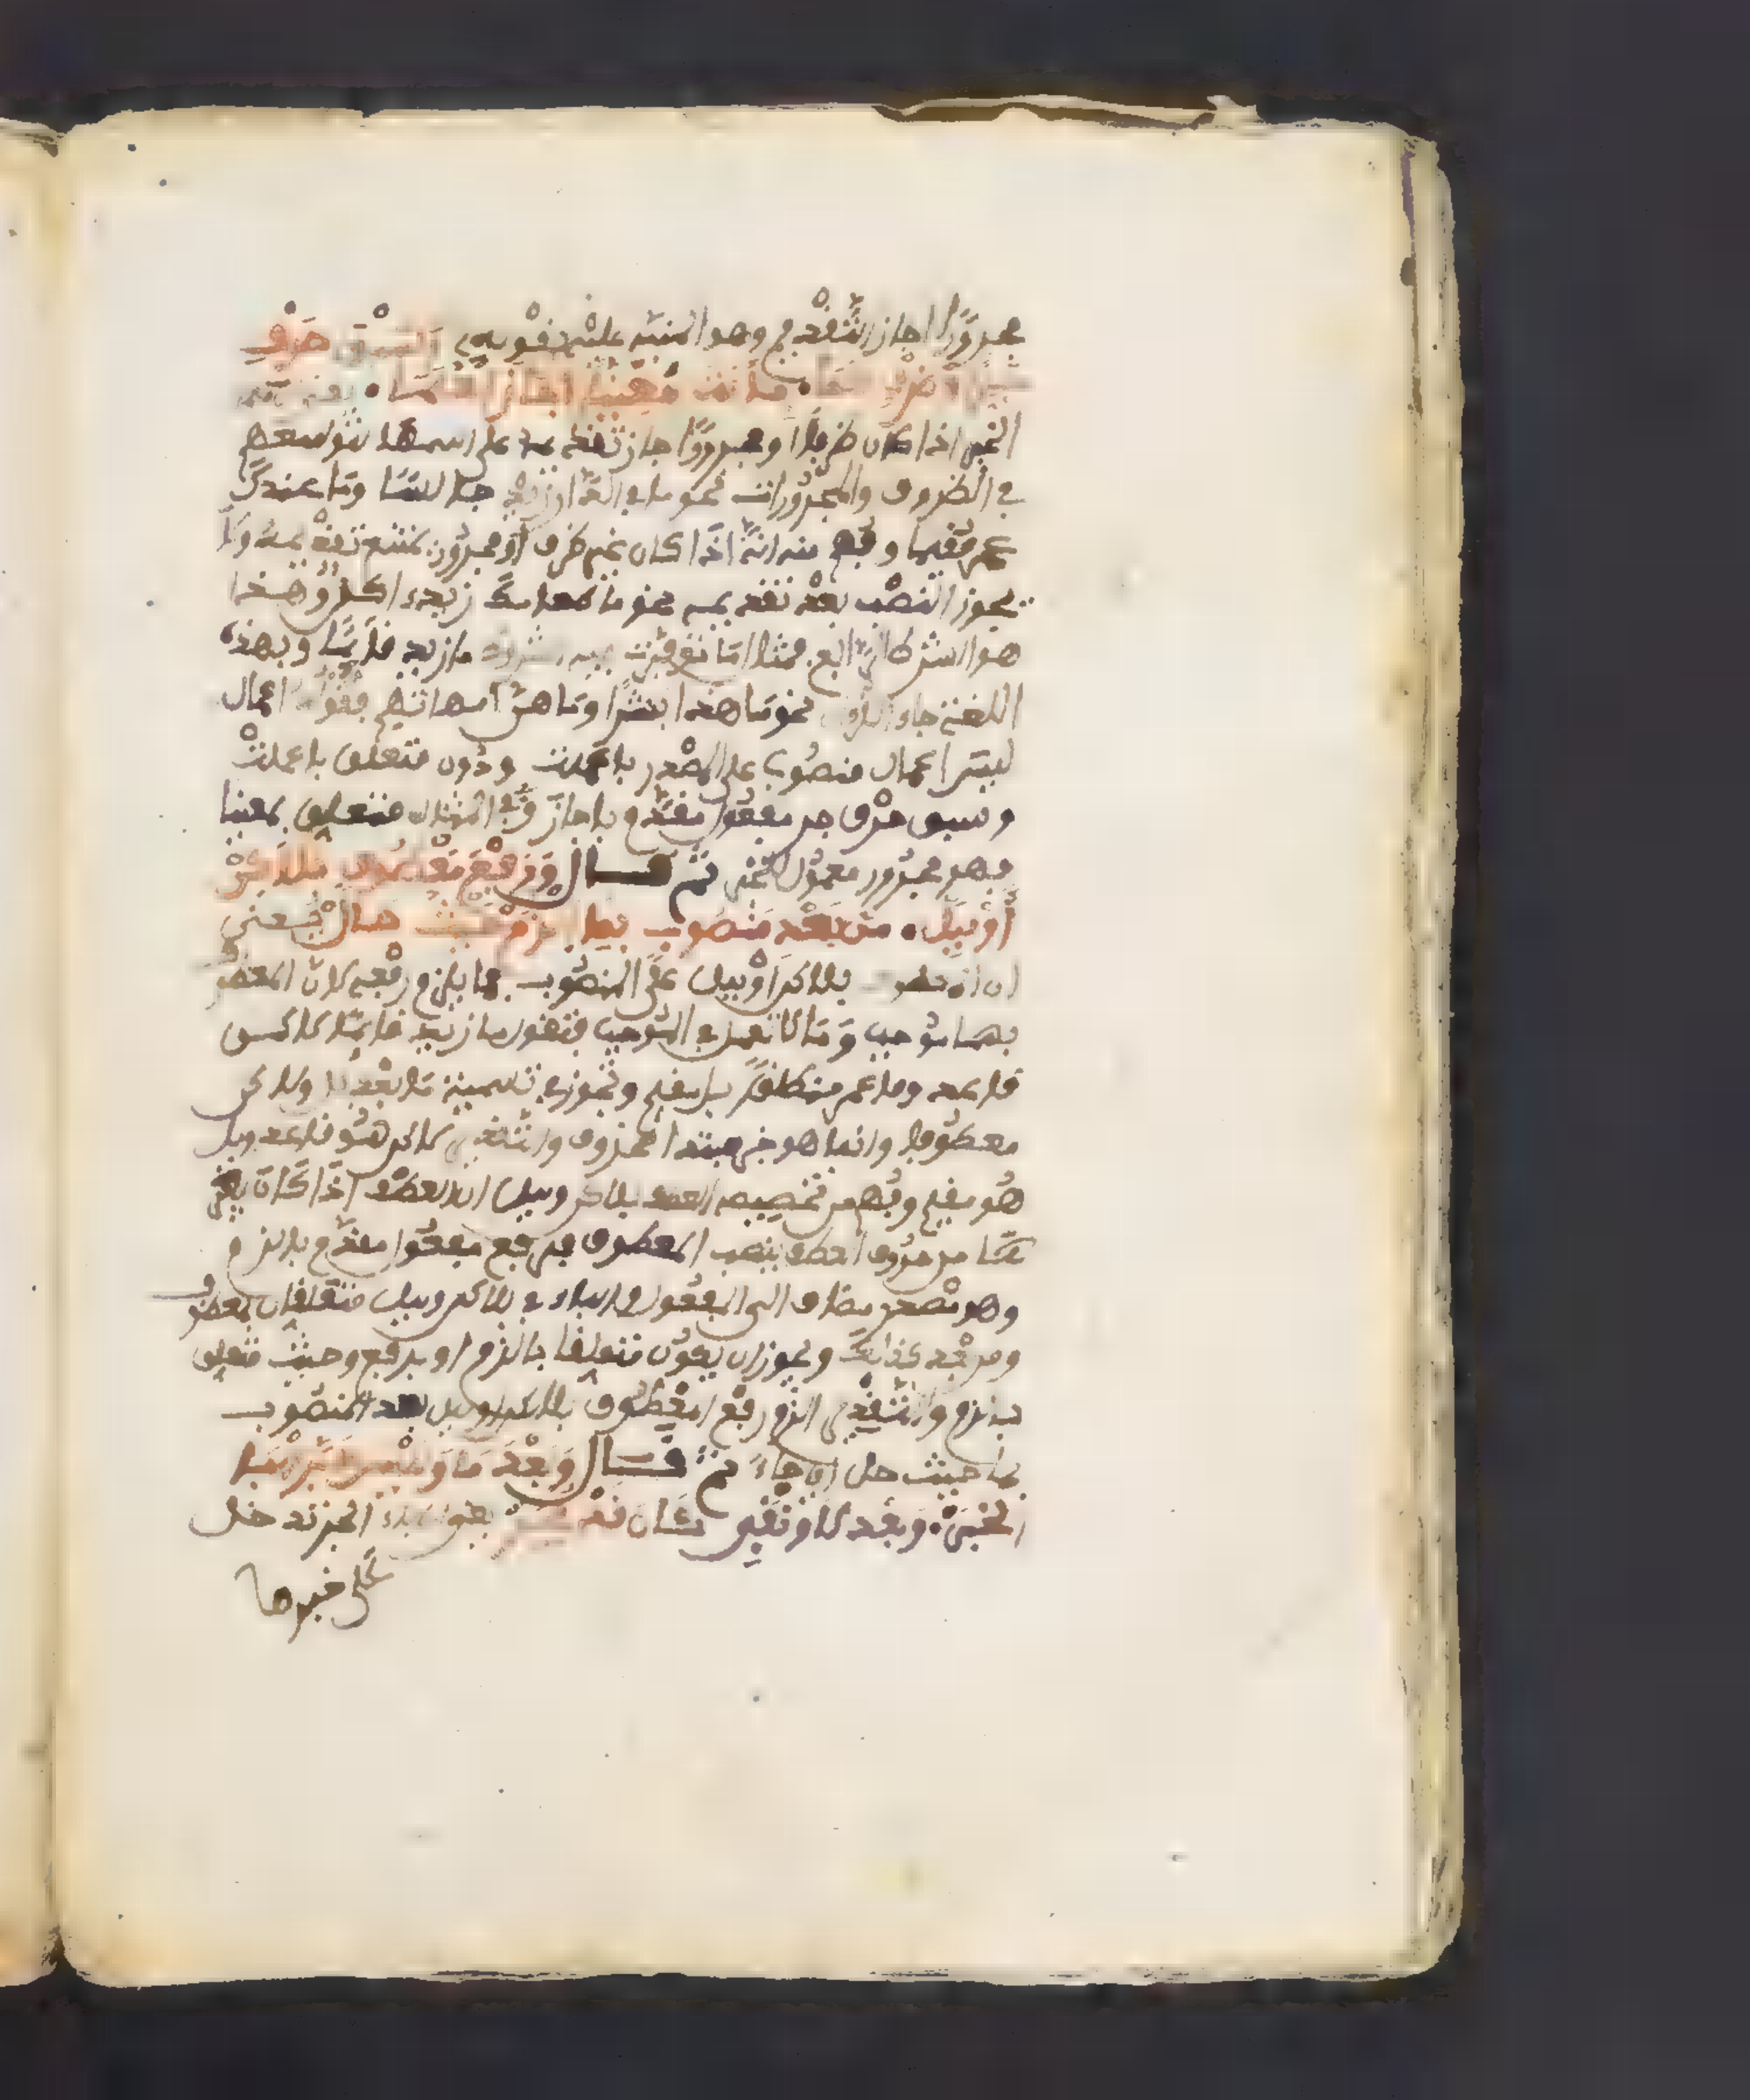 مجرورًا جاز التقديم وهو المنبه عليه بقوله وسبق حرف
جر او ظرف كما بي انت معنيا اجاز العلما يعني ان
الخبر اذا كان ظرفا او مجرورا جاز تقديمه على اسمها لتوسعهم
في الظروف والمجرورات نحو ما في الدار زيد جالسا وما عندك
عمر مقيما وفهم منه انه اذا كان غير ظرف او مجرور يمتنع تقديمه ولا
يجوز النصب بعد تقديمه نحو ما طعامك زيد اكل وهذا
هو الشرط الرابع فمثال ما توفرت فيه الشروط ما زيد قائما وبهذه
اللغة جاء القران نحو ما هذا بشرا وما هن امهاتهم فقوله اعمال
ليس اعمال منصوب على المصدر باعملت ودون متعلق باعملت
وسبق حرف جر مفعول مقدم باجاز وفي المثال متعلق بمعنيا
فهو مجرور معمول للخبر ثم قال ورفع معطوف بلاكن
او ببل من بعد منصوب بما الزم حيث حل يعني
ان المعطوف بلاكن او ببل على المنصوب بما يلزم رفعه لان المعطوف
بهما موجب وما لا تعمل في الموجب فتقول ما زيد قائما لاكن
قاعد وما عمر منطلقا بل مقيم وتجوز في تسمية ما بعد بل ولاكن
معطوفا وانما هو خبر مبتدا محذوف والتقدير لاكن هو قاعد وبل
هو مقيم وفهم من تخصيصه العطف بلاكن وببل ان العطف اذا كان بغير
هما من حروف العطف ينصب المعطوف فرفع مفعول مقدم بالزم
وهو مصدر مضاف الى المفعول والباء في بلاكن وببل متعلقان بمعطوف
ومن بعد كذلك ويجوز ان يكون متعلقا بالزم او برفع وحيث متعلق
بالزم والتقدير الزم رفع المعطوف بلاكن او ببل بعد المنصوب
بما حيث حل اي جاء ثم قال وبعد ما وليس جر البا
الخبر وبعد لا ونفي كان قد يجر يعني ان باء الجر تدخل
على خبرها